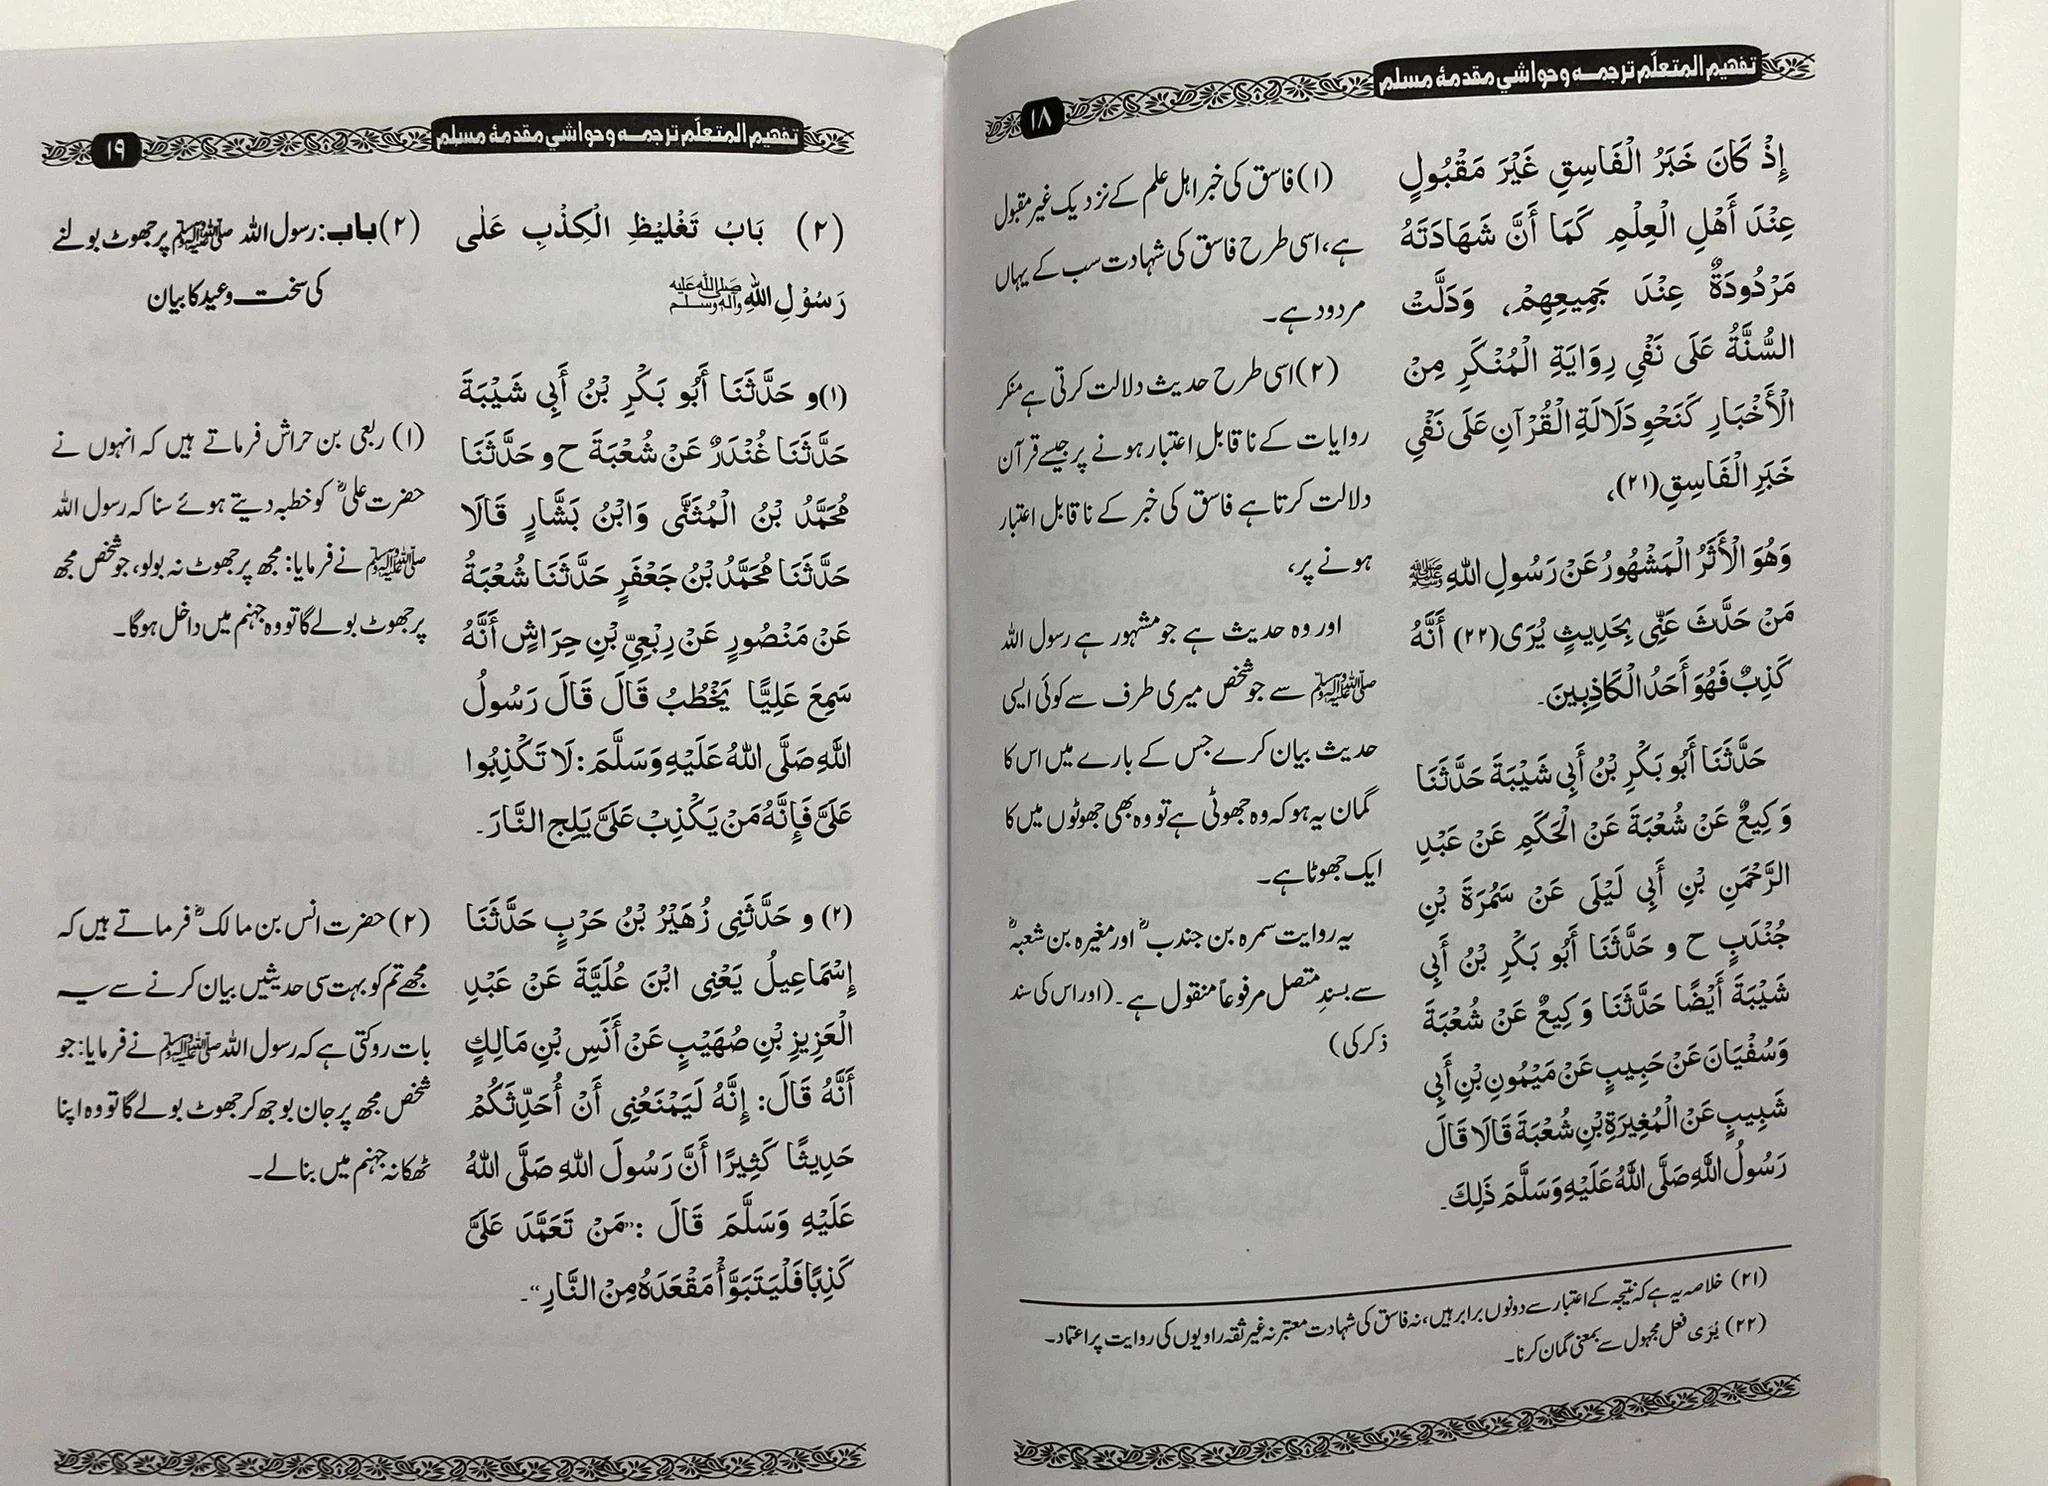 تفهيم المتعلّم ترجمہ وحواشي مقدمۂ مسلم
۱۸
إِذْ كَانَ خَبَرُ الْفَاسِقِ غَيْرَ مَقْبُولٍ
عِنْدَ أَهْلِ الْعِلْمِ كَمَا أَنَّ شَهَادَتَهُ
مَرْدُودَةٌ عِنْدَ جَمِيعِهِمْ، وَدَلَّتْ
السُّنَّةُ عَلَى نَفْيِ رِوَايَةِ الْمُنْكَرِ مِنْ
الْأَخْبَارِ كَنَحْوِ دَلَالَةِ الْقُرْآنِ عَلَى نَفْيِ
خَبَرِ الْفَاسِقِ(۲۱)،
وَهُوَ الْأَثَرُ الْمَشْهُورُ عَنْ رَسُولِ اللهِ ﷺ
مَنْ حَدَّثَ عَنِّي بِحَدِيثٍ يُرَى(۲۲) أَنَّهُ
كَذِبٌ فَهُوَ أَحَدُ الْكَاذِبِينَ۔
حَدَّثَنَا أَبُو بَكْرِ بْنُ أَبِي شَيْبَةَ حَدَّثَنَا
وَكِيعٌ عَنْ شُعْبَةَ عَنْ الْحَكَمِ عَنْ عَبْدِ
الرَّحْمَنِ بْنِ أَبِي لَيْلَى عَنْ سَمُرَةَ بْنِ
جُنْدَبٍ ح و حَدَّثَنَا أَبُو بَكْرِ بْنُ أَبِي
شَيْبَةَ أَيْضًا حَدَّثَنَا وَكِيعٌ عَنْ شُعْبَةَ
وَسُفْيَانَ عَنْ حَبِيبٍ عَنْ مَيْمُونِ بْنِ أَبِي
شَبِيبٍ عَنْ الْمُغِيرَةِ بْنِ شُعْبَةَ قَالَا قَالَ
رَسُولُ اللَّهِ صَلَّى اللَّهُ عَلَيْهِ وَسَلَّمَ ذَلِكَ۔
(۱) فاسق کی خبر اہل علم کے نزدیک غیر مقبول
ہے، اسی طرح فاسق کی شہادت سب کے یہاں
مردود ہے۔
(۲) اسی طرح حدیث دلالت کرتی ہے منکر
روایات کے ناقابلِ اعتبار ہونے پر جیسے قرآن
دلالت کرتا ہے فاسق کی خبر کے ناقابل اعتبار
ہونے پر،
اور وہ حدیث ہے جو مشہور ہے رسول اللہ
ﷺ سے جو شخص میری طرف سے کوئی ایسی
حدیث بیان کرے جس کے بارے میں اس کا
گمان یہ ہو کہ وہ جھوٹی ہے تو وہ بھی جھوٹوں میں کا
ایک جھوٹا ہے۔
یہ روایت سمرہ بن جندبؓ اور مغیرہ بن شعبہؓ
سے بسندِ متصل مرفوعاً منقول ہے۔(اور اس کی سند
ذکر کی)
(۲۱) خلاصہ یہ ہے کہ نتیجہ کے اعتبار سے دونوں برابر ہیں، نہ فاسق کی شہادت معتبر نہ غیر ثقہ راویوں کی روایت پر اعتماد۔
(۲۲) یُرَی فعل مجہول سے بمعنی گمان کرنا۔
تفهيم المتعلّم ترجمہ وحواشي مقدمۂ مسلم
۱۹
(۲) بَابُ تَغْلِيْظِ الْكِذْبِ عَلٰى
رَسُوْلِ اللهِ ﷺ
(۱) و حَدَّثَنَا أَبُو بَكْرِ بْنُ أَبِي شَيْبَةَ
حَدَّثَنَا غُنْدَرٌ عَنْ شُعْبَةَ ح و حَدَّثَنَا
مُحَمَّدُ بْنُ الْمُثَنَّى وَابْنُ بَشَّارٍ قَالَا
حَدَّثَنَا مُحَمَّدُ بْنُ جَعْفَرٍ حَدَّثَنَا شُعْبَةُ
عَنْ مَنْصُورٍ عَنْ رِبْعِيِّ بْنِ حِرَاشٍ أَنَّهُ
سَمِعَ عَلِيًّا يَخْطُبُ قَالَ قَالَ رَسُولُ
اللَّهِ صَلَّى اللهُ عَلَيْهِ وَسَلَّمَ: لَا تَكْذِبُوا
عَلَيَّ فَإِنَّهُ مَنْ يَكْذِبْ عَلَيَّ يَلِج النَّارَ۔
(۲) و حَدَّثَنِی زُهَيْرُ بْنُ حَرْبٍ حَدَّثَنَا
إِسْمَاعِيلُ يَعْنِی ابْنَ عُلَيَّةَ عَنْ عَبْدِ
الْعَزِيزِ بْنِ صُهَيْبٍ عَنْ أَنَسِ بْنِ مَالِكٍ
أَنَّهُ قَالَ: إِنَّهُ لَيَمْنَعُنِی أَنْ أُحَدِّثَكُمْ
حَدِيثًا كَثِيرًا أَنَّ رَسُولَ اللهِ صَلَّى اللهُ
عَلَيْهِ وَسَلَّمَ قَالَ :”مَنْ تَعَمَّدَ عَلَيَّ
كَذِبًا فَلْيَتَبَوَّأْ مَقْعَدَهُ مِنْ النَّارِ“۔
(۲) باب: رسول اللہ ﷺ پر جھوٹ بولنے
کی سخت وعید کا بیان
(۱) ربعی بن حراش فرماتے ہیں کہ انہوں نے
حضرت علیؓ کو خطبہ دیتے ہوئے سنا کہ رسول اللہ
ﷺ نے فرمایا: مجھ پر جھوٹ نہ بولو، جو شخص مجھ
پر جھوٹ بولے گا تو وہ جہنم میں داخل ہوگا۔
(۲) حضرت انس بن مالکؓ فرماتے ہیں کہ
مجھے تم کو بہت سی حدیثیں بیان کرنے سے یہ
بات روکتی ہے کہ رسول اللہ ﷺ نے فرمایا: جو
شخص مجھ پر جان بوجھ کر جھوٹ بولے گا تو وہ اپنا
ٹھکانہ جہنم میں بنالے۔